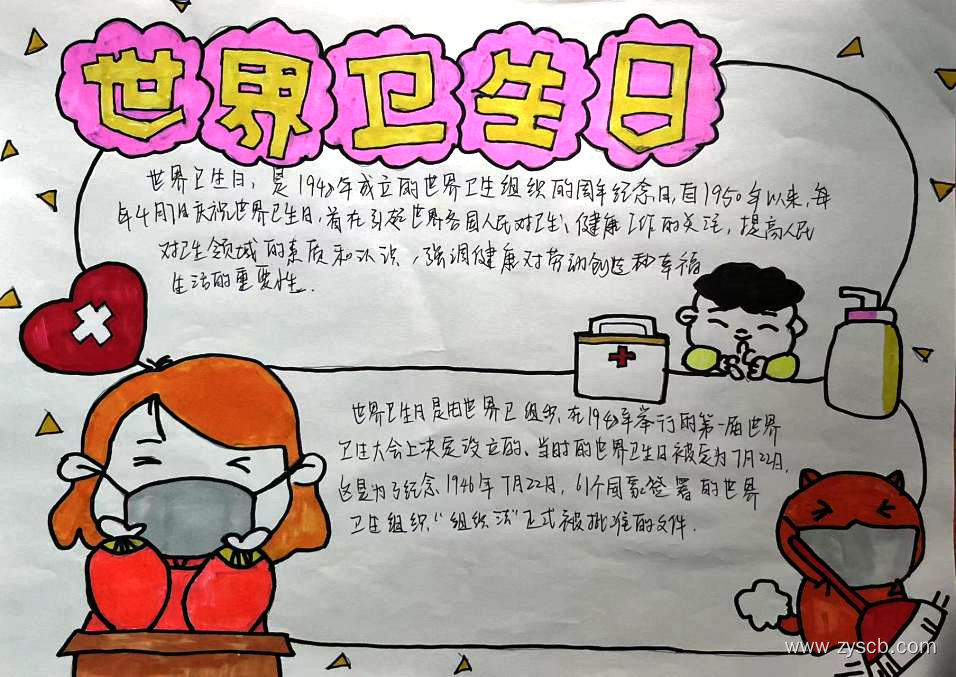 世界卫生日
世界卫生日，是1948年成立的世界卫生组织的周年纪念日，自1950年以来，每
年4月7日庆祝世界卫生日，旨在引起世界各国人民对卫生、健康工作的关注，提高人民
对卫生领域的素质和认识，强调健康对劳动创造和幸福
生活的重要性.
世界卫生日是由世界卫组织在1948年举行的第一届世界
卫生大会上决定设立的、当时的世界卫生日被定为7月22日，
这是为了纪念1946年7月22日，61个国家签署的世界
卫生组织“组织法”正式被批准的文件.
www.zyscb.com